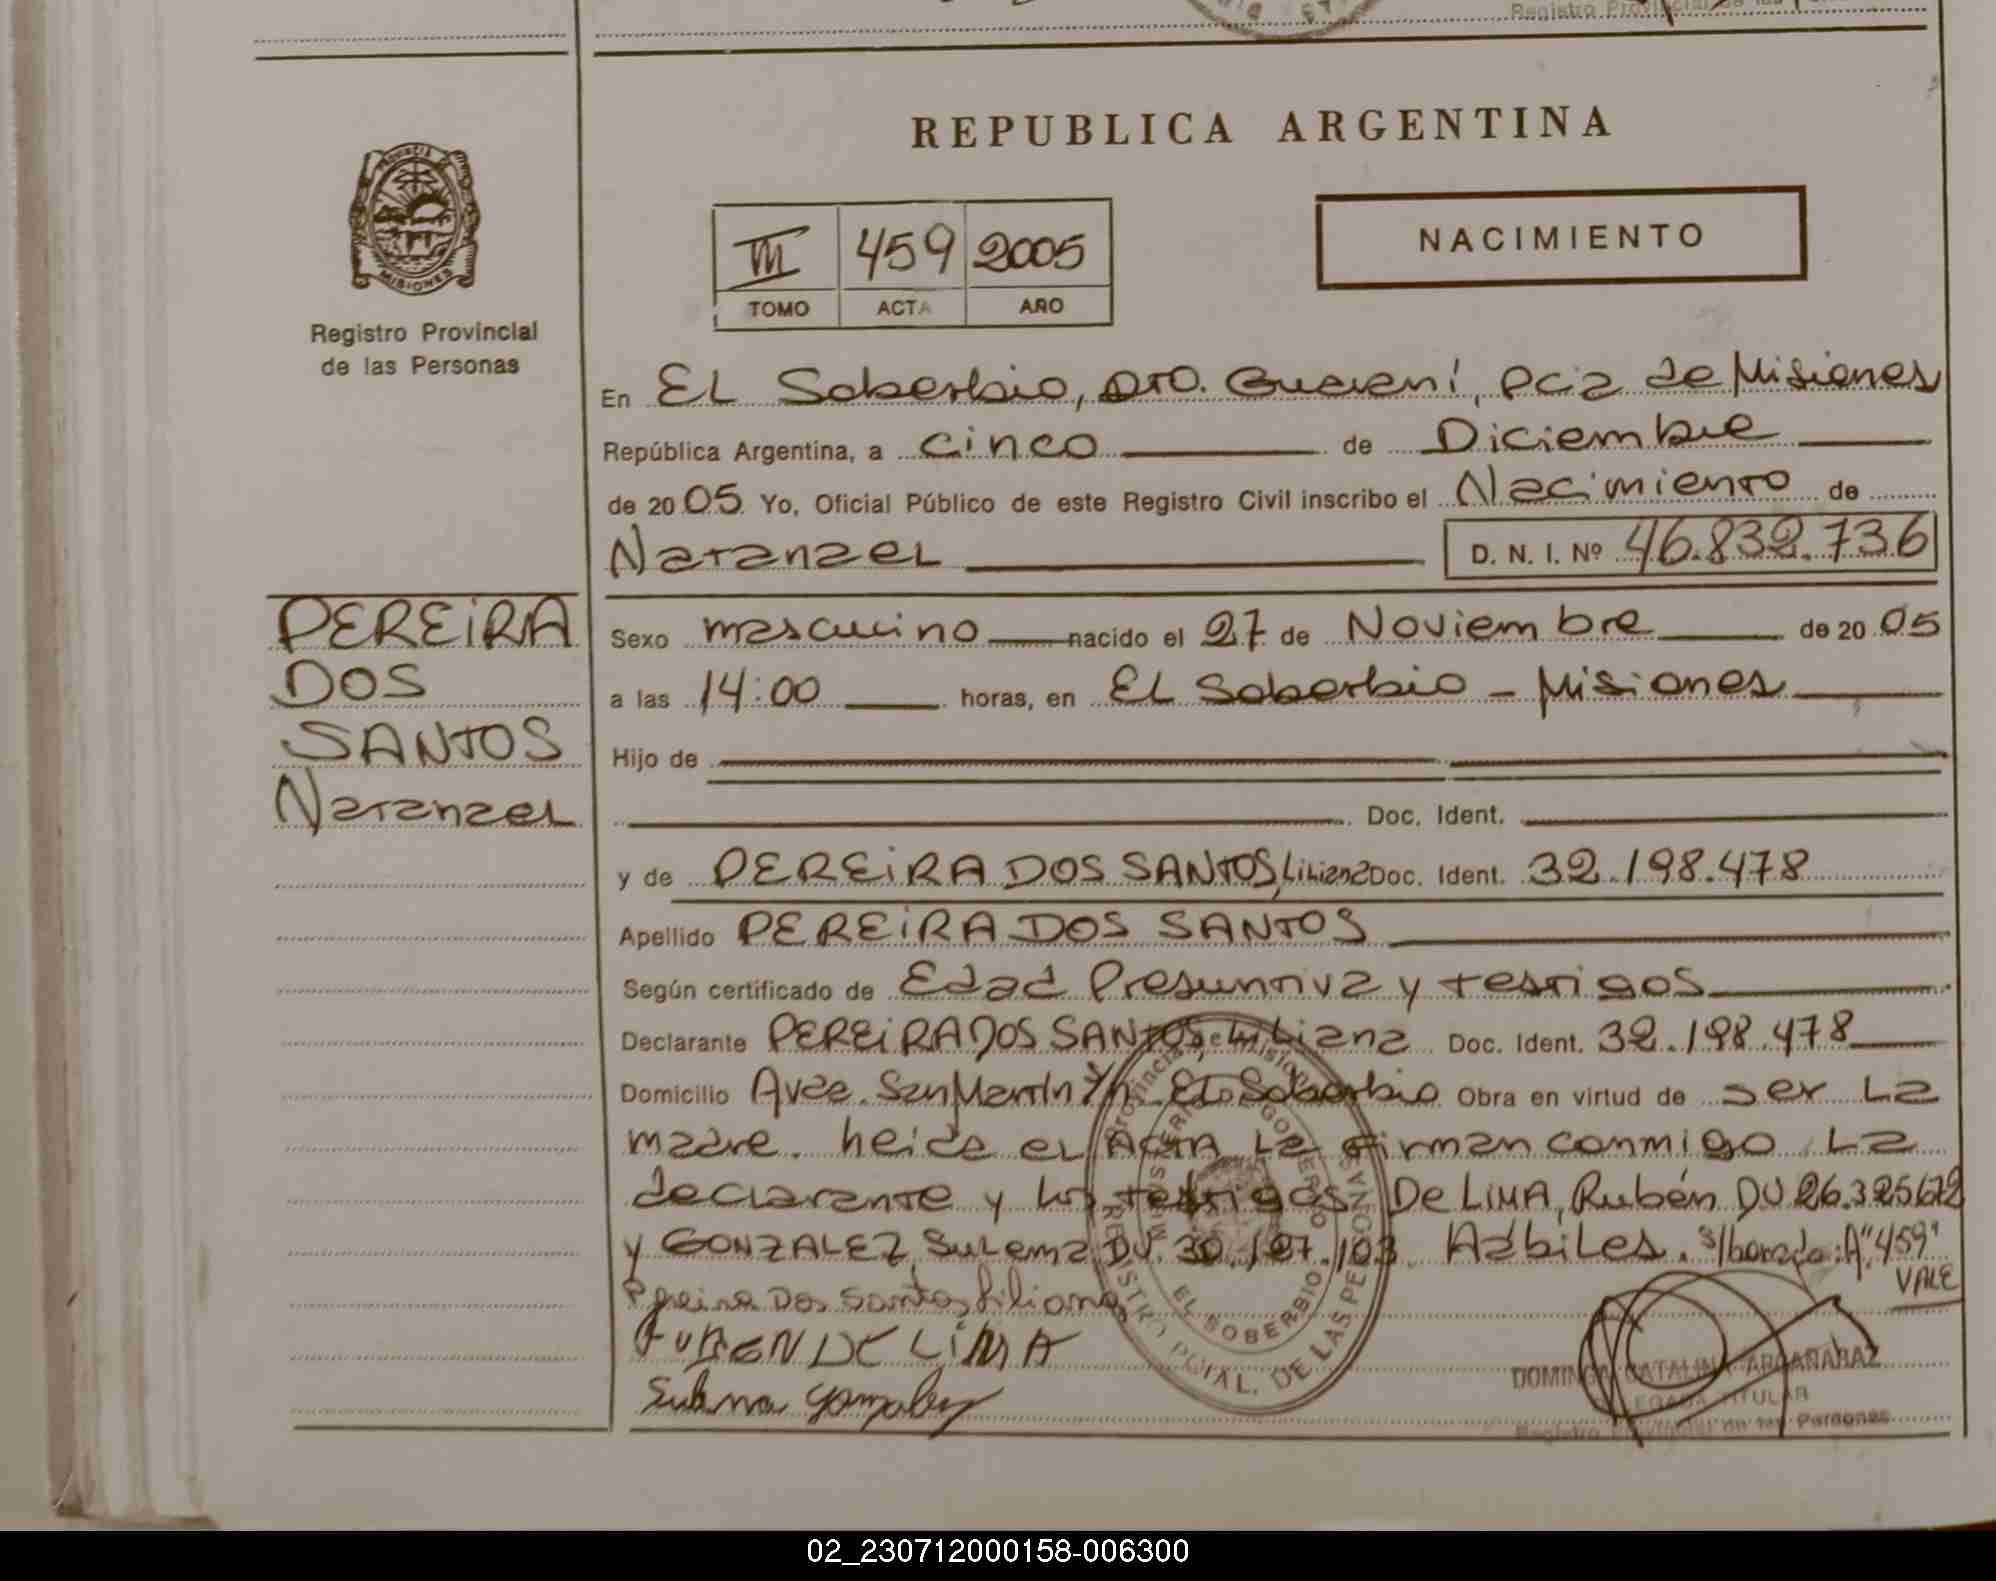 REPUBLICA ARGENTINA
PROVINCIA DE MISIONES
Registro Provincial
de las Personas
III 459 2005
TOMO ACTA AÑO
NACIMIENTO
En EL Soberbio, Dto. Guaraní, Pcia de Misiones
República Argentina, a cinco de Diciembre
de 2005 Yo, Oficial Público de este Registro Civil inscribo el Nacimiento de
Natanael D. N. I. Nº 46.832.736
PEREiRA
DOS
SANTOS
Natanael
Sexo masculino nacido el 27 de Noviembre de 2005
a las 14:00 horas, en EL Soberbio - Misiones
Hijo de
Doc. Ident.
y de PEREiRA DOS SANTOS, Liliana Doc. Ident. 32.198.478
Apellido PEREiRA DOS SANTOS
Según certificado de Edad Presuntiva y testigos
Declarante PEREiRA DOS SANTOS, Liliana Doc. Ident. 32.198.478
Domicilio Avda. San Martín s/n EL Soberbio Obra en virtud de ser La
madre. heida el ACTA La firman conmigo La
declarante y los testigos De LiMA, Rubén DU 26.325.672
y GONZALEZ, Sulema DU. 30.127.103 Hábiles. s/borrado: A "459"
VALE
Pereira Dos Santos Liliana
RUBEN DE LiMA
Sulema Gonzalez
EL SOBERBIO
REGISTRO PCIAL. DE LAS PERSONAS
DOMINGA CATALINA ARGAÑARAZ
TITULAR
Registro Provincial de las Personas
02_230712000158-006300